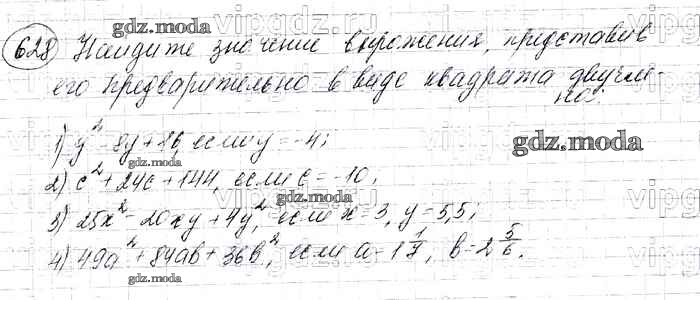 628 Найдите значение выражения, представив
его предварительно в виде квадрата двучле-
на:
1) y² - 8y + 16, если y = -4;
2) c² + 24c + 144, если c = -10;
3) 25x² - 20xy + 4y², если x = 3, y = 5,5;
4) 49a² + 84ab + 36b², если a = 1 1/7, b = 2 5/6.
gdz.moda
gdz.moda
gdz.moda
gdz.moda
gdz.moda
gdz.moda
vipgdz
vipgdz
vipgdz